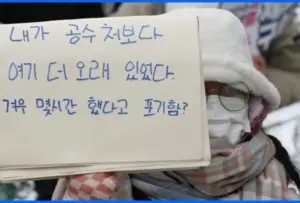 내가 공수처보다
여기 더 오래 있었다.
겨우 몇시간 했다고 포기함?